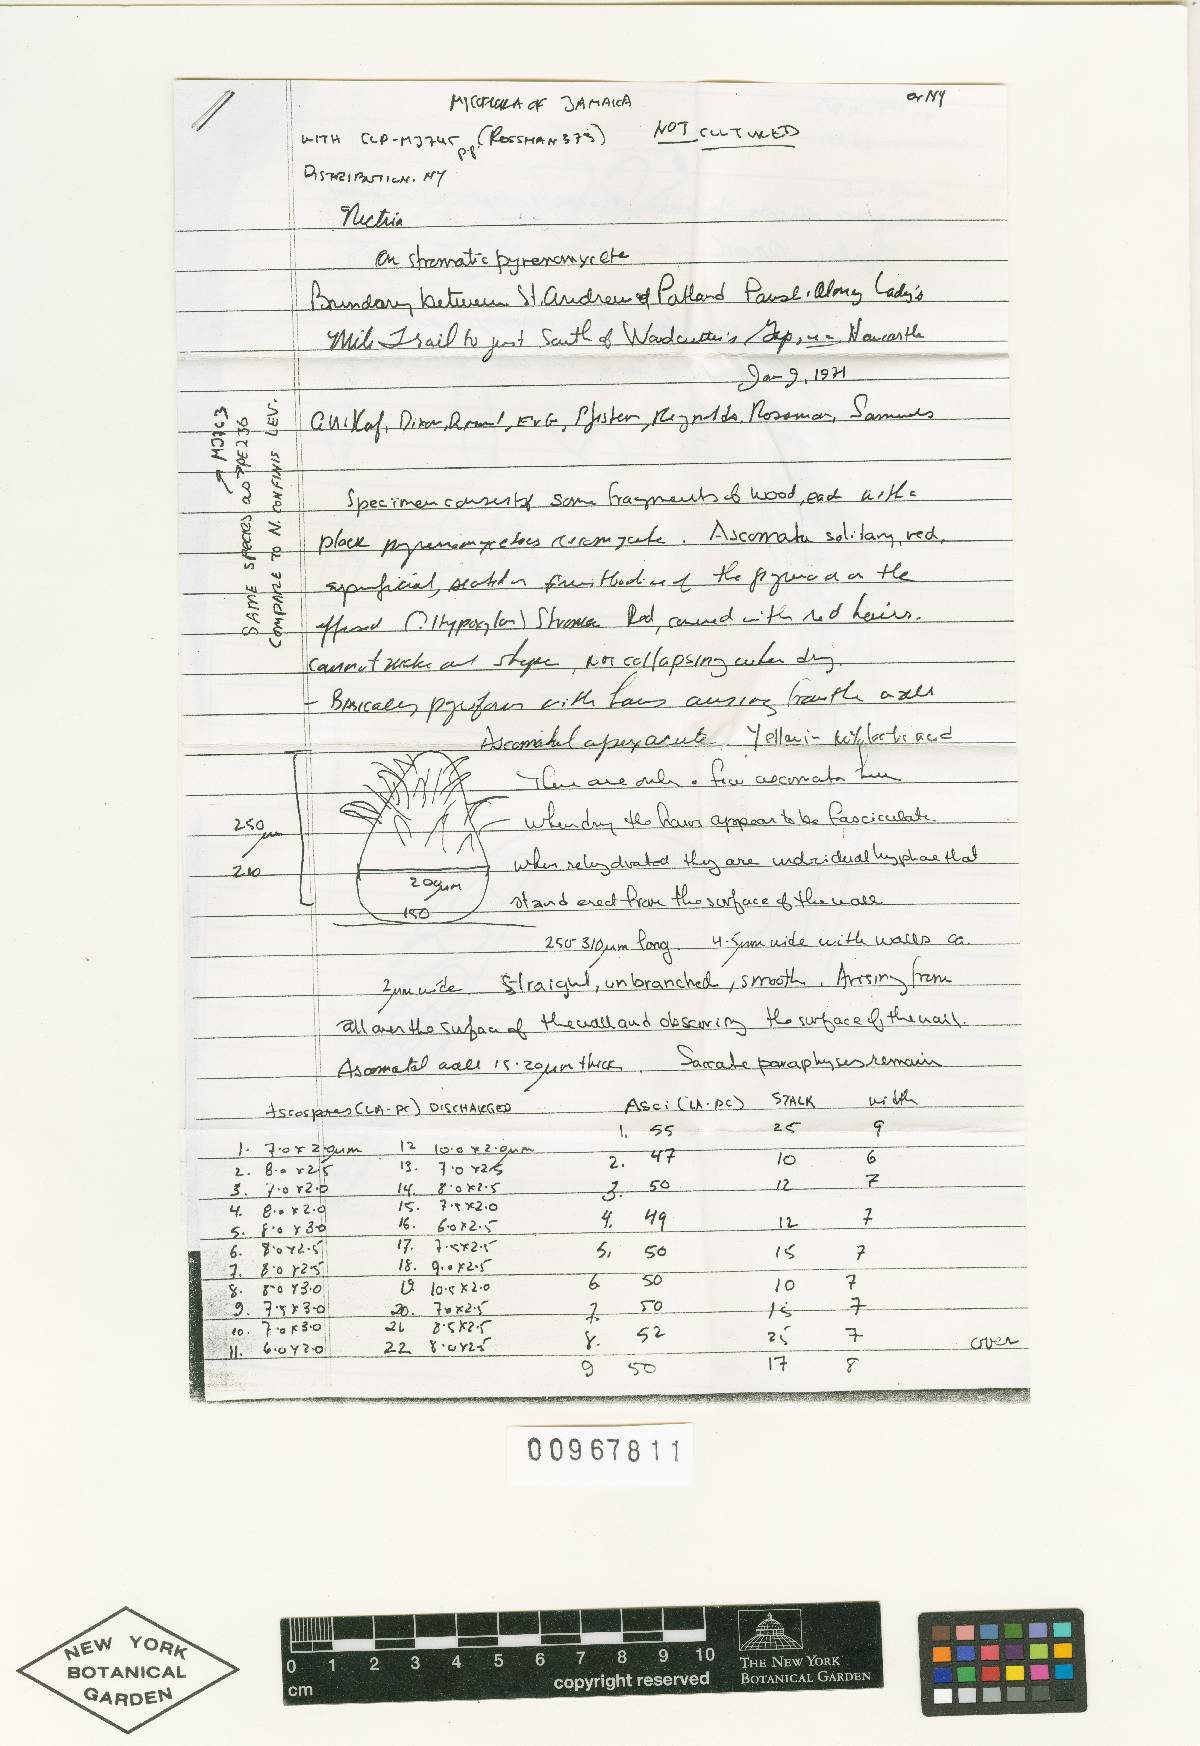 MYCOFLORA OF JAMAICA
or NY
WITH CLP-MJ745 p.p. (ROSSMAN 373) NOT CULTURED
DISTRIBUTION. NY
Nectria
on stromatic pyrenomycete
Boundary between St. Andrew & Portland Parish. Along Lady's
Mile Trail to just South of Woodcutter's Gap, Newcastle
Jan 9, 1971
Korf, Dixon, EvG, Pfister, Reynolds, Rossman, Samuels
→ MJ763
SAME SPECIES as PE236
COMPARE TO N. CONFINIS LEV.
Specimen consists of some fragments of wood, each with a
black pyrenomycetous. Ascomata solitary, red,
superficial, seated on fruitbodies of the pyreno or on the
effused (?Hypoxylon) Stroma Red, covered with red hairs.
Cannot make out shape, NOT collapsing when dry.
- BASICALLY pyriform with hairs arising from the walls
Ascomatal apex acute. Yellow in lactic acid
There are only a few ascomata here
250 µm
210
200µm
150
When dry the hairs appear to be fasciculate.
when rehydrated they are individual hyphae that
stand erect from the surface of the wall
250-310µm long 4-5µm wide with walls ca.
2µm wide Straight, unbranched, smooth. Arising from
all over the surface of the wall and obscuring the surface of the wall.
Ascomatal wall 15-20µm thick. Saccate paraphyses remain
Ascospores (LA-PC) DISCHARGED Asci (LA-PC) STALK width
1. 55 25 9
1. 7.0 x 2.0µm 12 10.0 x 2.0µm
2. 8.0 x 2.5 13. 7.0 x 2.5 2. 47 10 6
3. 7.0 x 2.0 14. 8.0 x 2.5 3. 50 12 7
4. 8.0 x 2.0 15. 7.5 x 2.0
5. 8.0 x 3.0 16. 6.0 x 2.5 4. 49 12 7
6. 8.0 x 2.5 17. 7.5 x 2.5 5. 50 15 7
7. 8.0 x 2.5 18. 9.0 x 2.5
8. 8.0 x 3.0 19 10.5 x 2.0 6 50 10 7
9. 7.5 x 3.0 20. 7.0 x 2.5 7. 50 15 7
10. 7.0 x 3.0 21 8.5 x 2.5 8. 52 25 7
11. 6.0 x 2.0 22 8.0 x 2.5
9 50 17 8
cover
00967811
NEW YORK
BOTANICAL
GARDEN
0 1 2 3 4 5 6 7 8 9 10
cm
copyright reserved
THE NEW YORK
BOTANICAL GARDEN